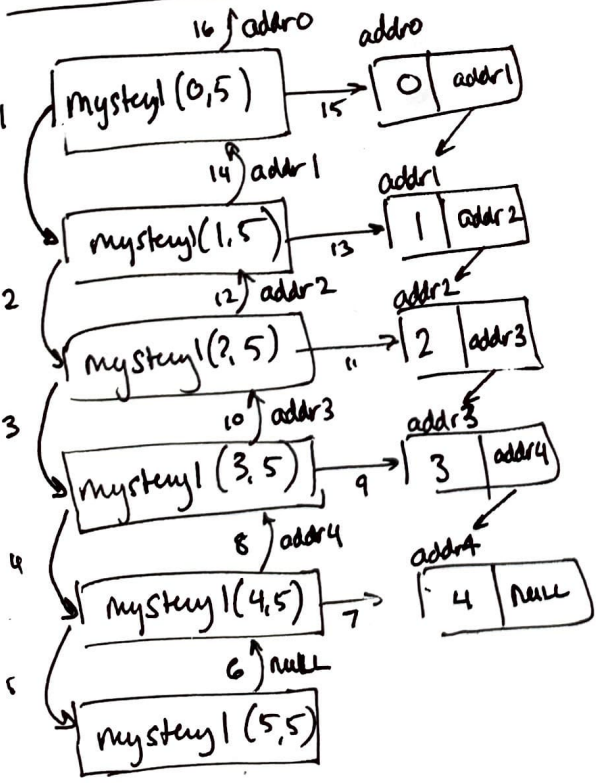 16 addr0
addr0
1
mystery1 (0,5)
15
0 addr1
14 addr1
addr1
mystery1(1,5)
13
1 addr2
2
12 addr2
addr2
mystery1(2,5)
11
2 addr3
3
10 addr3
addr3
mystery1 (3,5)
9
3 addr4
4
8 addr4
addr4
mystery1(4,5)
7
4 NULL
5
6 NULL
mystery1 (5,5)